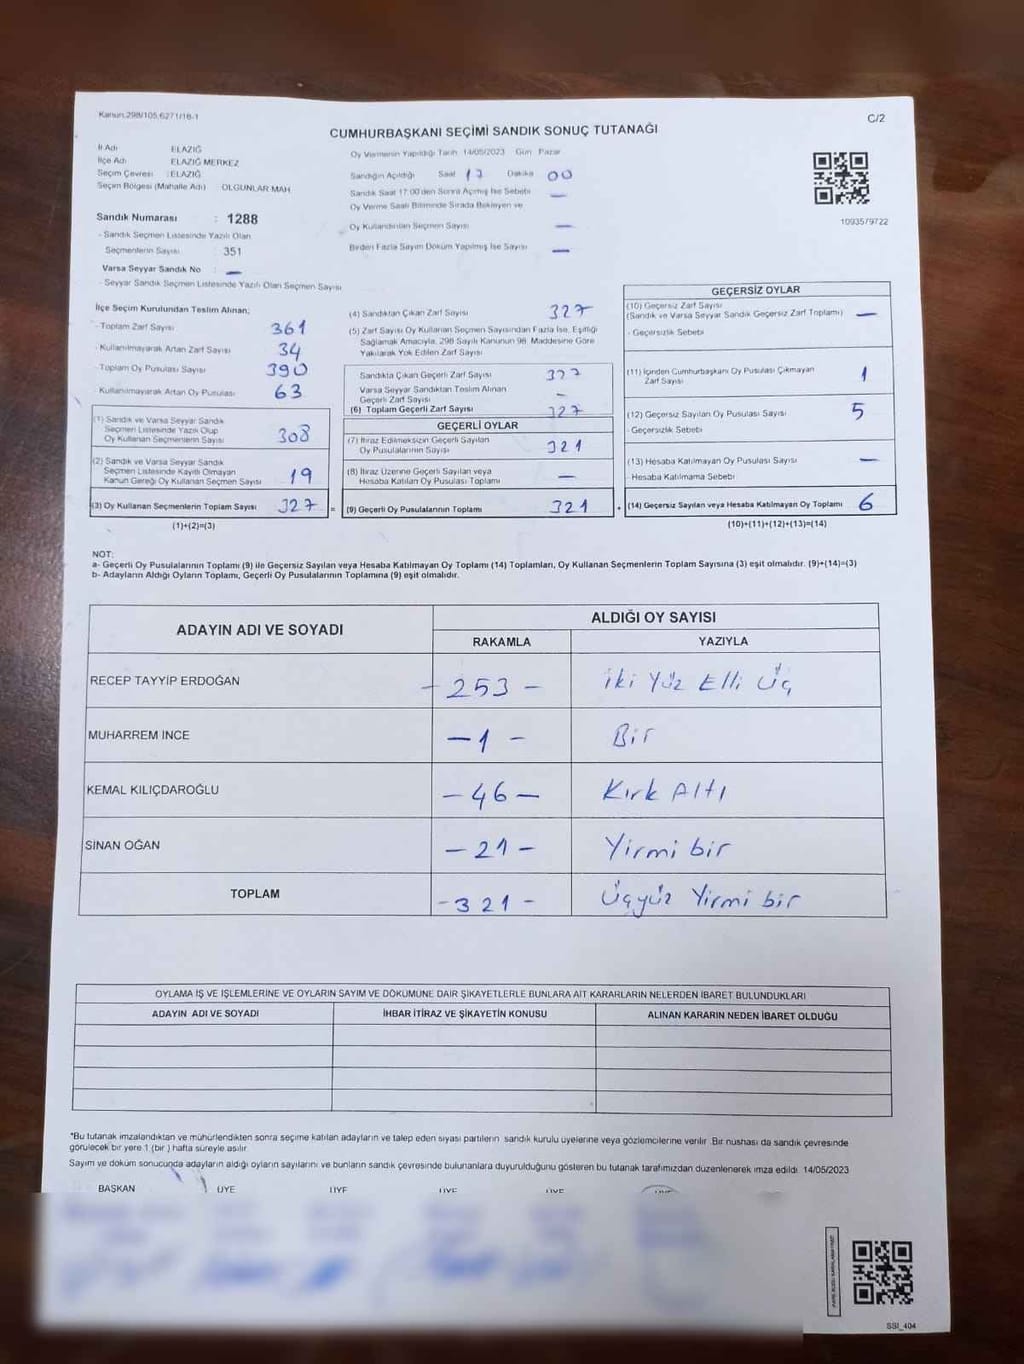 Kanun:298/105,6271/18-1
C/2
CUMHURBAŞKANI SEÇİMİ SANDIK SONUÇ TUTANAĞI
İl Adı : ELAZIĞ
İlçe Adı : ELAZIĞ MERKEZ
Seçim Çevresi : ELAZIĞ
Seçim Bölgesi (Mahalle Adı) OLGUNLAR MAH.
Sandık Numarası : 1288
- Sandık Seçmen Listesinde Yazılı Olan
Seçmenlerin Sayısı : 351
Varsa Seyyar Sandık No : —
- Seyyar Sandık Seçmen Listesinde Yazılı Olan Seçmen Sayısı
Oy Vermenin Yapıldığı Tarih 14/05/2023 Gün Pazar
Sandığın Açıldığı Saat 17 Dakika 00
Sandık Saat 17:00'den Sonra Açılmış İse Sebebi —
Oy Verme Saati Bitiminde Sırada Bekleyen ve
Oy Kullandırılan Seçmen Sayısı —
Birden Fazla Sayım Döküm Yapılmış İse Sayısı —
1093579722
İlçe Seçim Kurulundan Teslim Alınan;
- Toplam Zarf Sayısı 361
- Kullanılmayarak Artan Zarf Sayısı 34
Toplam Oy Pusulası Sayısı 390
Kullanılmayarak Artan Oy Pusulası 63
(1) Sandık ve Varsa Seyyar Sandık
Seçmen Listesinde Yazılı Olup
Oy Kullanan Seçmenlerin Sayısı 308
(2) Sandık ve Varsa Seyyar Sandık
Seçmen Listesinde Kayıtlı Olmayan
Kanun Gereği Oy Kullanan Seçmen Sayısı 19
(3) Oy Kullanan Seçmenlerin Toplam Sayısı 327 =
(1)+(2)=(3)
(4) Sandıktan Çıkan Zarf Sayısı 327
(5) Zarf Sayısı Oy Kullanan Seçmen Sayısından Fazla İse, Eşitliği
Sağlamak Amacıyla, 298 Sayılı Kanunun 98. Maddesine Göre
Yakılarak Yok Edilen Zarf Sayısı
Sandıkta Çıkan Geçerli Zarf Sayısı 327
Varsa Seyyar Sandıktan Teslim Alınan
Geçerli Zarf Sayısı —
(6) Toplam Geçerli Zarf Sayısı 327
GEÇERLİ OYLAR
(7) İtiraz Edilmeksizin Geçerli Sayılan
Oy Pusulalarının Sayısı 321
(8) İtiraz Üzerine Geçerli Sayılan veya
Hesaba Katılan Oy Pusulası Toplamı —
(9) Geçerli Oy Pusulalarının Toplamı 321 +
GEÇERSİZ OYLAR
(10) Geçersiz Zarf Sayısı
(Sandık ve Varsa Seyyar Sandık Geçersiz Zarf Toplamı) —
- Geçersizlik Sebebi
(11) İçinden Cumhurbaşkanı Oy Pusulası Çıkmayan
Zarf Sayısı 1
(12) Geçersiz Sayılan Oy Pusulası Sayısı 5
- Geçersizlik Sebebi
(13) Hesaba Katılmayan Oy Pusulası Sayısı —
- Hesaba Katılmama Sebebi
(14) Geçersiz Sayılan veya Hesaba Katılmayan Oy Toplamı 6
(10)+(11)+(12)+(13)=(14)
NOT:
a- Geçerli Oy Pusulalarının Toplamı (9) ile Geçersiz Sayılan veya Hesaba Katılmayan Oy Toplamı (14) Toplamları, Oy Kullanan Seçmenlerin Toplam Sayısına (3) eşit olmalıdır. (9)+(14)=(3)
b- Adayların Aldığı Oyların Toplamı, Geçerli Oy Pusulalarının Toplamına (9) eşit olmalıdır.
ADAYIN ADI VE SOYADI
ALDIĞI OY SAYISI
RAKAMLA YAZIYLA
RECEP TAYYİP ERDOĞAN - 253 - İki Yüz Elli Üç
MUHARREM İNCE - 1 - Bir
KEMAL KILIÇDAROĞLU - 46 - Kırk Altı
SİNAN OĞAN - 21 - Yirmi bir
TOPLAM - 321 - Üçyüz Yirmi bir
OYLAMA İŞ VE İŞLEMLERİNE VE OYLARIN SAYIM VE DÖKÜMÜNE DAİR ŞİKAYETLERLE BUNLARA AİT KARARLARIN NELERDEN İBARET BULUNDUKLARI
ADAYIN ADI VE SOYADI İHBAR İTİRAZ VE ŞİKAYETİN KONUSU ALINAN KARARIN NEDEN İBARET OLDUĞU
*Bu tutanak imzalandıktan ve mühürlendikten sonra seçime katılan adayların ve talep eden siyasi partilerin sandık kurulu üyelerine veya gözlemcilerine verilir. Bir nüshası da sandık çevresinde
görülecek bir yere 1 (bir) hafta süreyle asılır.
Sayım ve döküm sonucunda adayların aldığı oyların sayılarını ve bunların sandık çevresinde bulunanlara duyurulduğunu gösteren bu tutanak tarafımızdan düzenlenerek imza edildi. 14/05/2023
BAŞKAN ÜYE ÜYE ÜYE ÜYE ÜYE
SSI_404